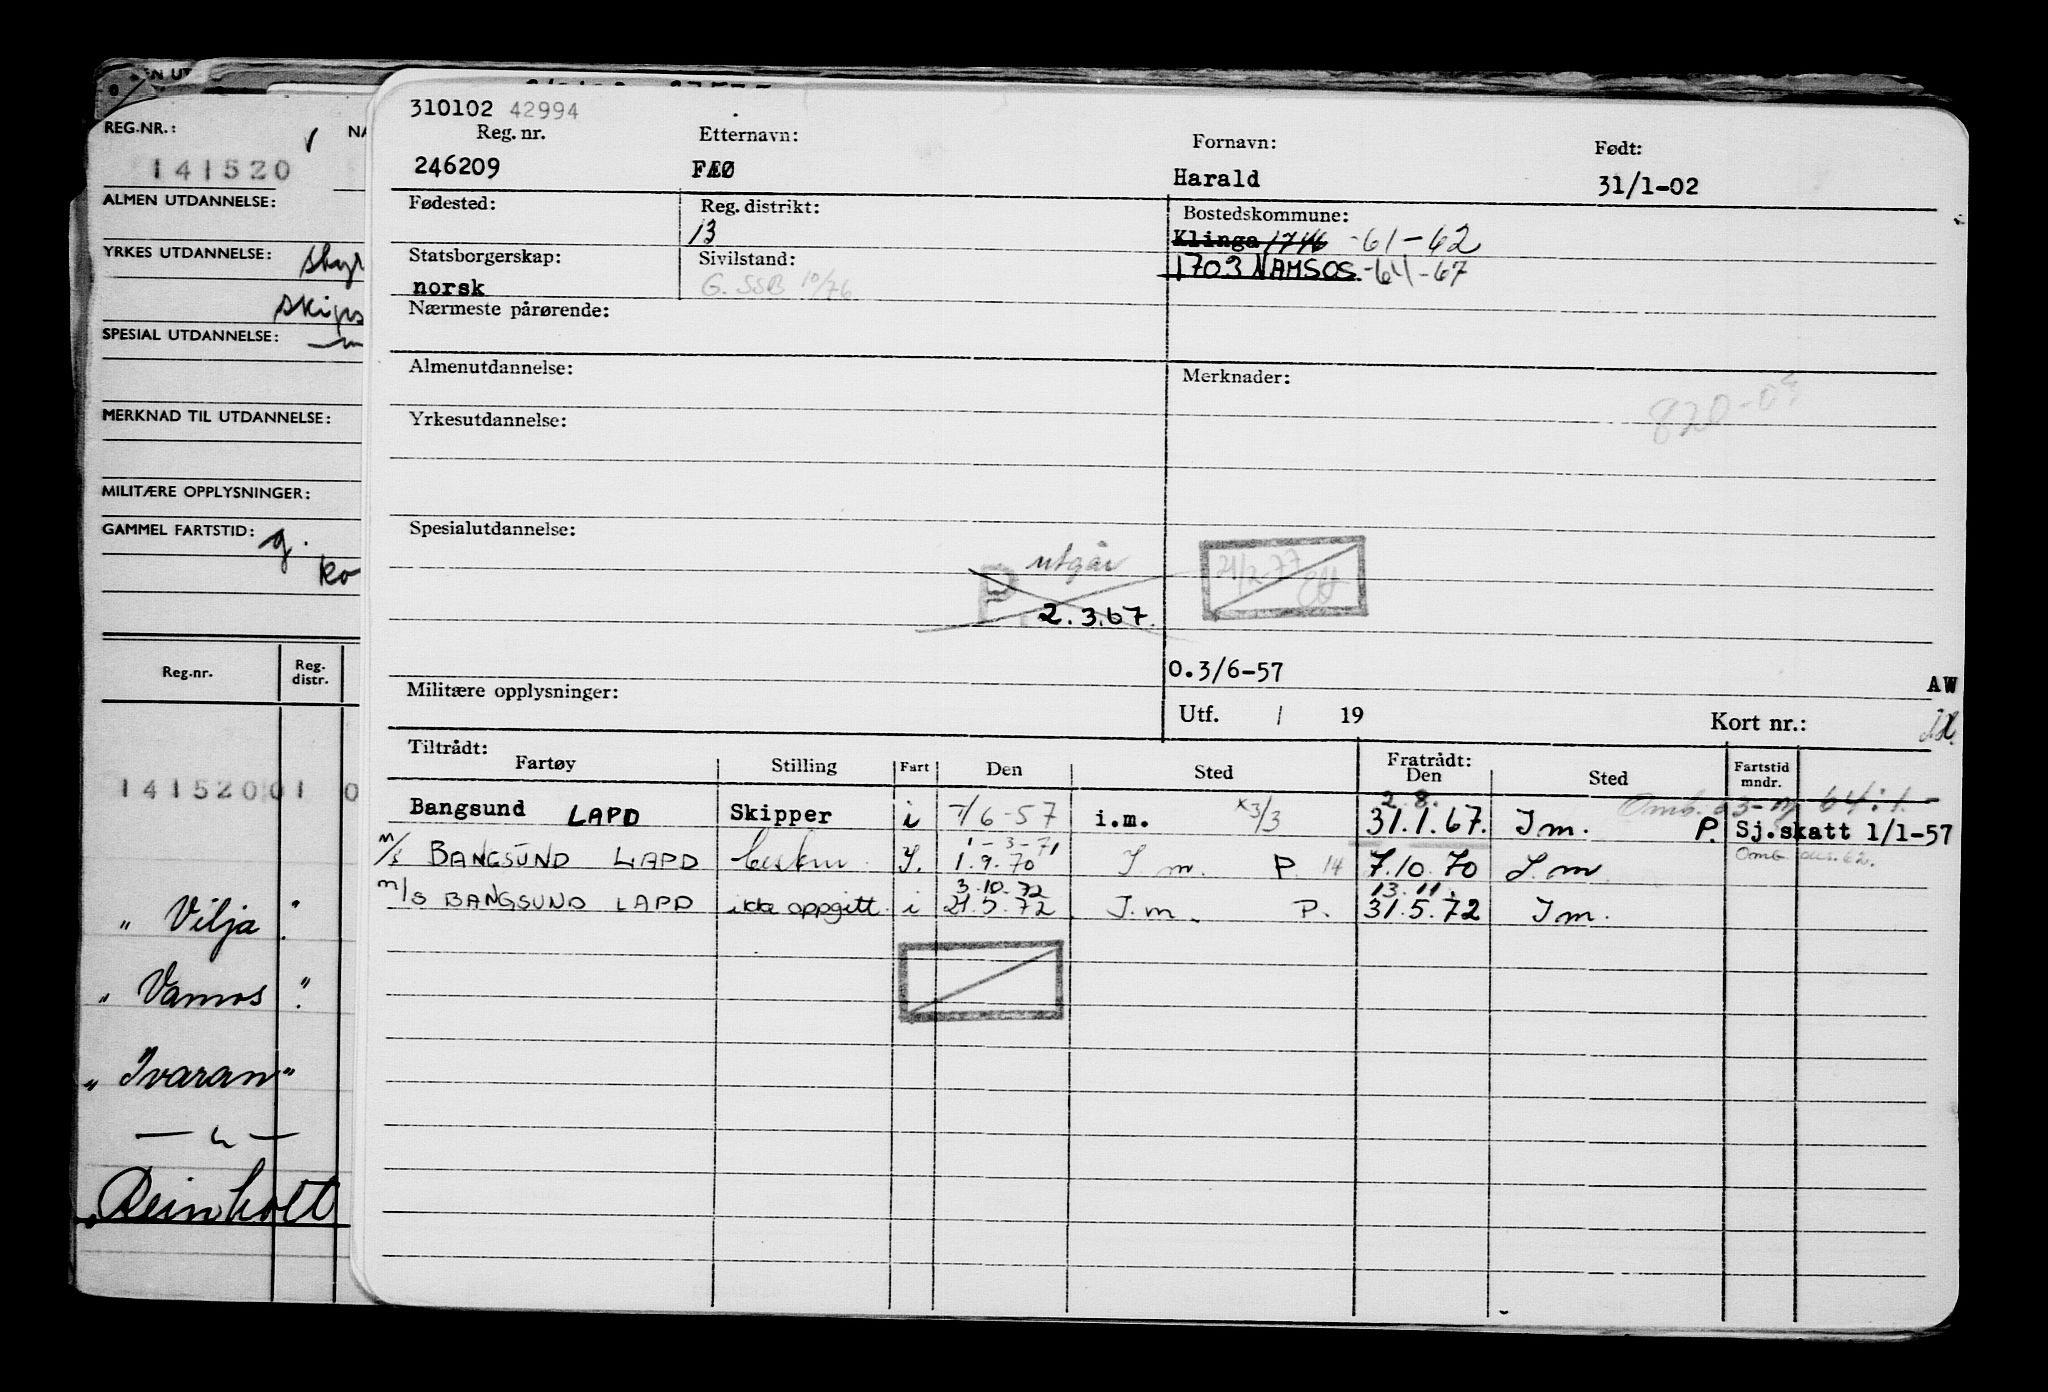 REG.NR.:
141520
ALMEN UTDANNELSE:
YRKES UTDANNELSE:
SPESIAL UTDANNELSE:
MERKNAD TIL UTDANNELSE:
MILITÆRE OPPLYSNINGER:
GAMMEL FARTSTID: g.
Reg.nr. Reg. distr.
14152001 0
" Vilja "
" Vamos "
" Ivaran "
Reinholt
310102 42994
Reg. nr. Etternavn: Fornavn: Født:
246209 FÆØ Harald 31/1-02
Fødested: Reg. distrikt: Bostedskommune:
13 Klinga 1746 -61-62
Statsborgerskap: Sivilstand: 1703 NAMSOS -64-67
norsk G. SSB 10/76
Nærmeste pårørende:
Almenutdannelse: Merknader:
Yrkesutdannelse:
Spesialutdannelse:
utgår
P 2.3.67.
O.3/6-57
Militære opplysninger: AW
Utf. / 19 Kort nr.:
Tiltrådt: Fratrådt:
Fartøy Stilling Fart Den Sted Den Sted Fartstid mndr.
2.8.
Bangsund LAPD Skipper i 7/6-57 i.m. x3/3 31.1.67. I m. P. Sj.skatt 1/1-57
1-3-71
m/s BANGSUND LAPD I. 1.9.70 I m. P 14 7.10.70 I.m
3.10.72 13.11.
m/s BANGSUND LAPD ikke oppgitt i 21.5.72 I.m. P. 31.5.72 I m.